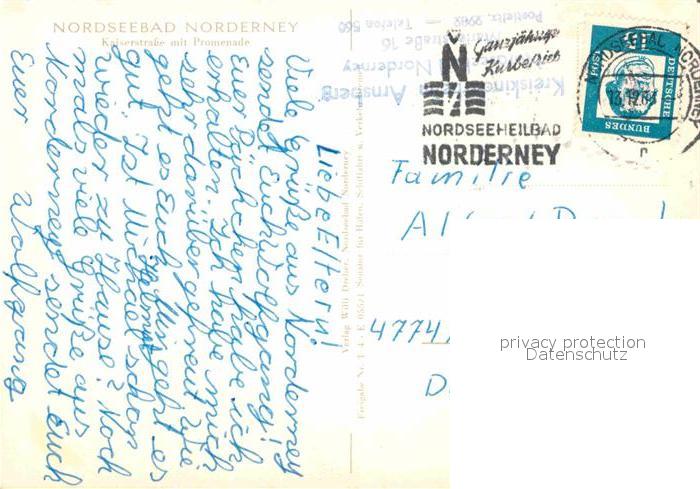 NORDSEEBAD NORDERNEY
Kaiserstraße mit Promenade
Liebe Eltern!
Viele Grüße aus Norderney
sendet Euch Wolfgang!
Eue Päckchen habe ich
erhalten. Ich habe mich
sehr darüber gefreut. Wie
geht es Euch? Mir geht es
gut. Ist Michael schon
wieder zu Hause? Noch
mals viele Grüße aus
Norderney sendet Euch
Euer Wolfgang
Helmut
Verlag Willi Dreher, Nordseebad Norderney
Freigabe Nr. 1 4 - E 055/1 Senator für Häfen, Schiffahrt u. Verkehr
Kreiskinderheim Arnsberg
Nordseebad Norderney
Marienstraße 16
Postfach 2982 — Telefon 560
Ganzjähriger
Kurbetrieb
N
NORDSEEHEILBAD
NORDERNEY
DEUTSCHE
BUNDESPOST
15
NORDSEEBAD NORDERNEY
Familie
4774
D
privacy protection
Datenschutz